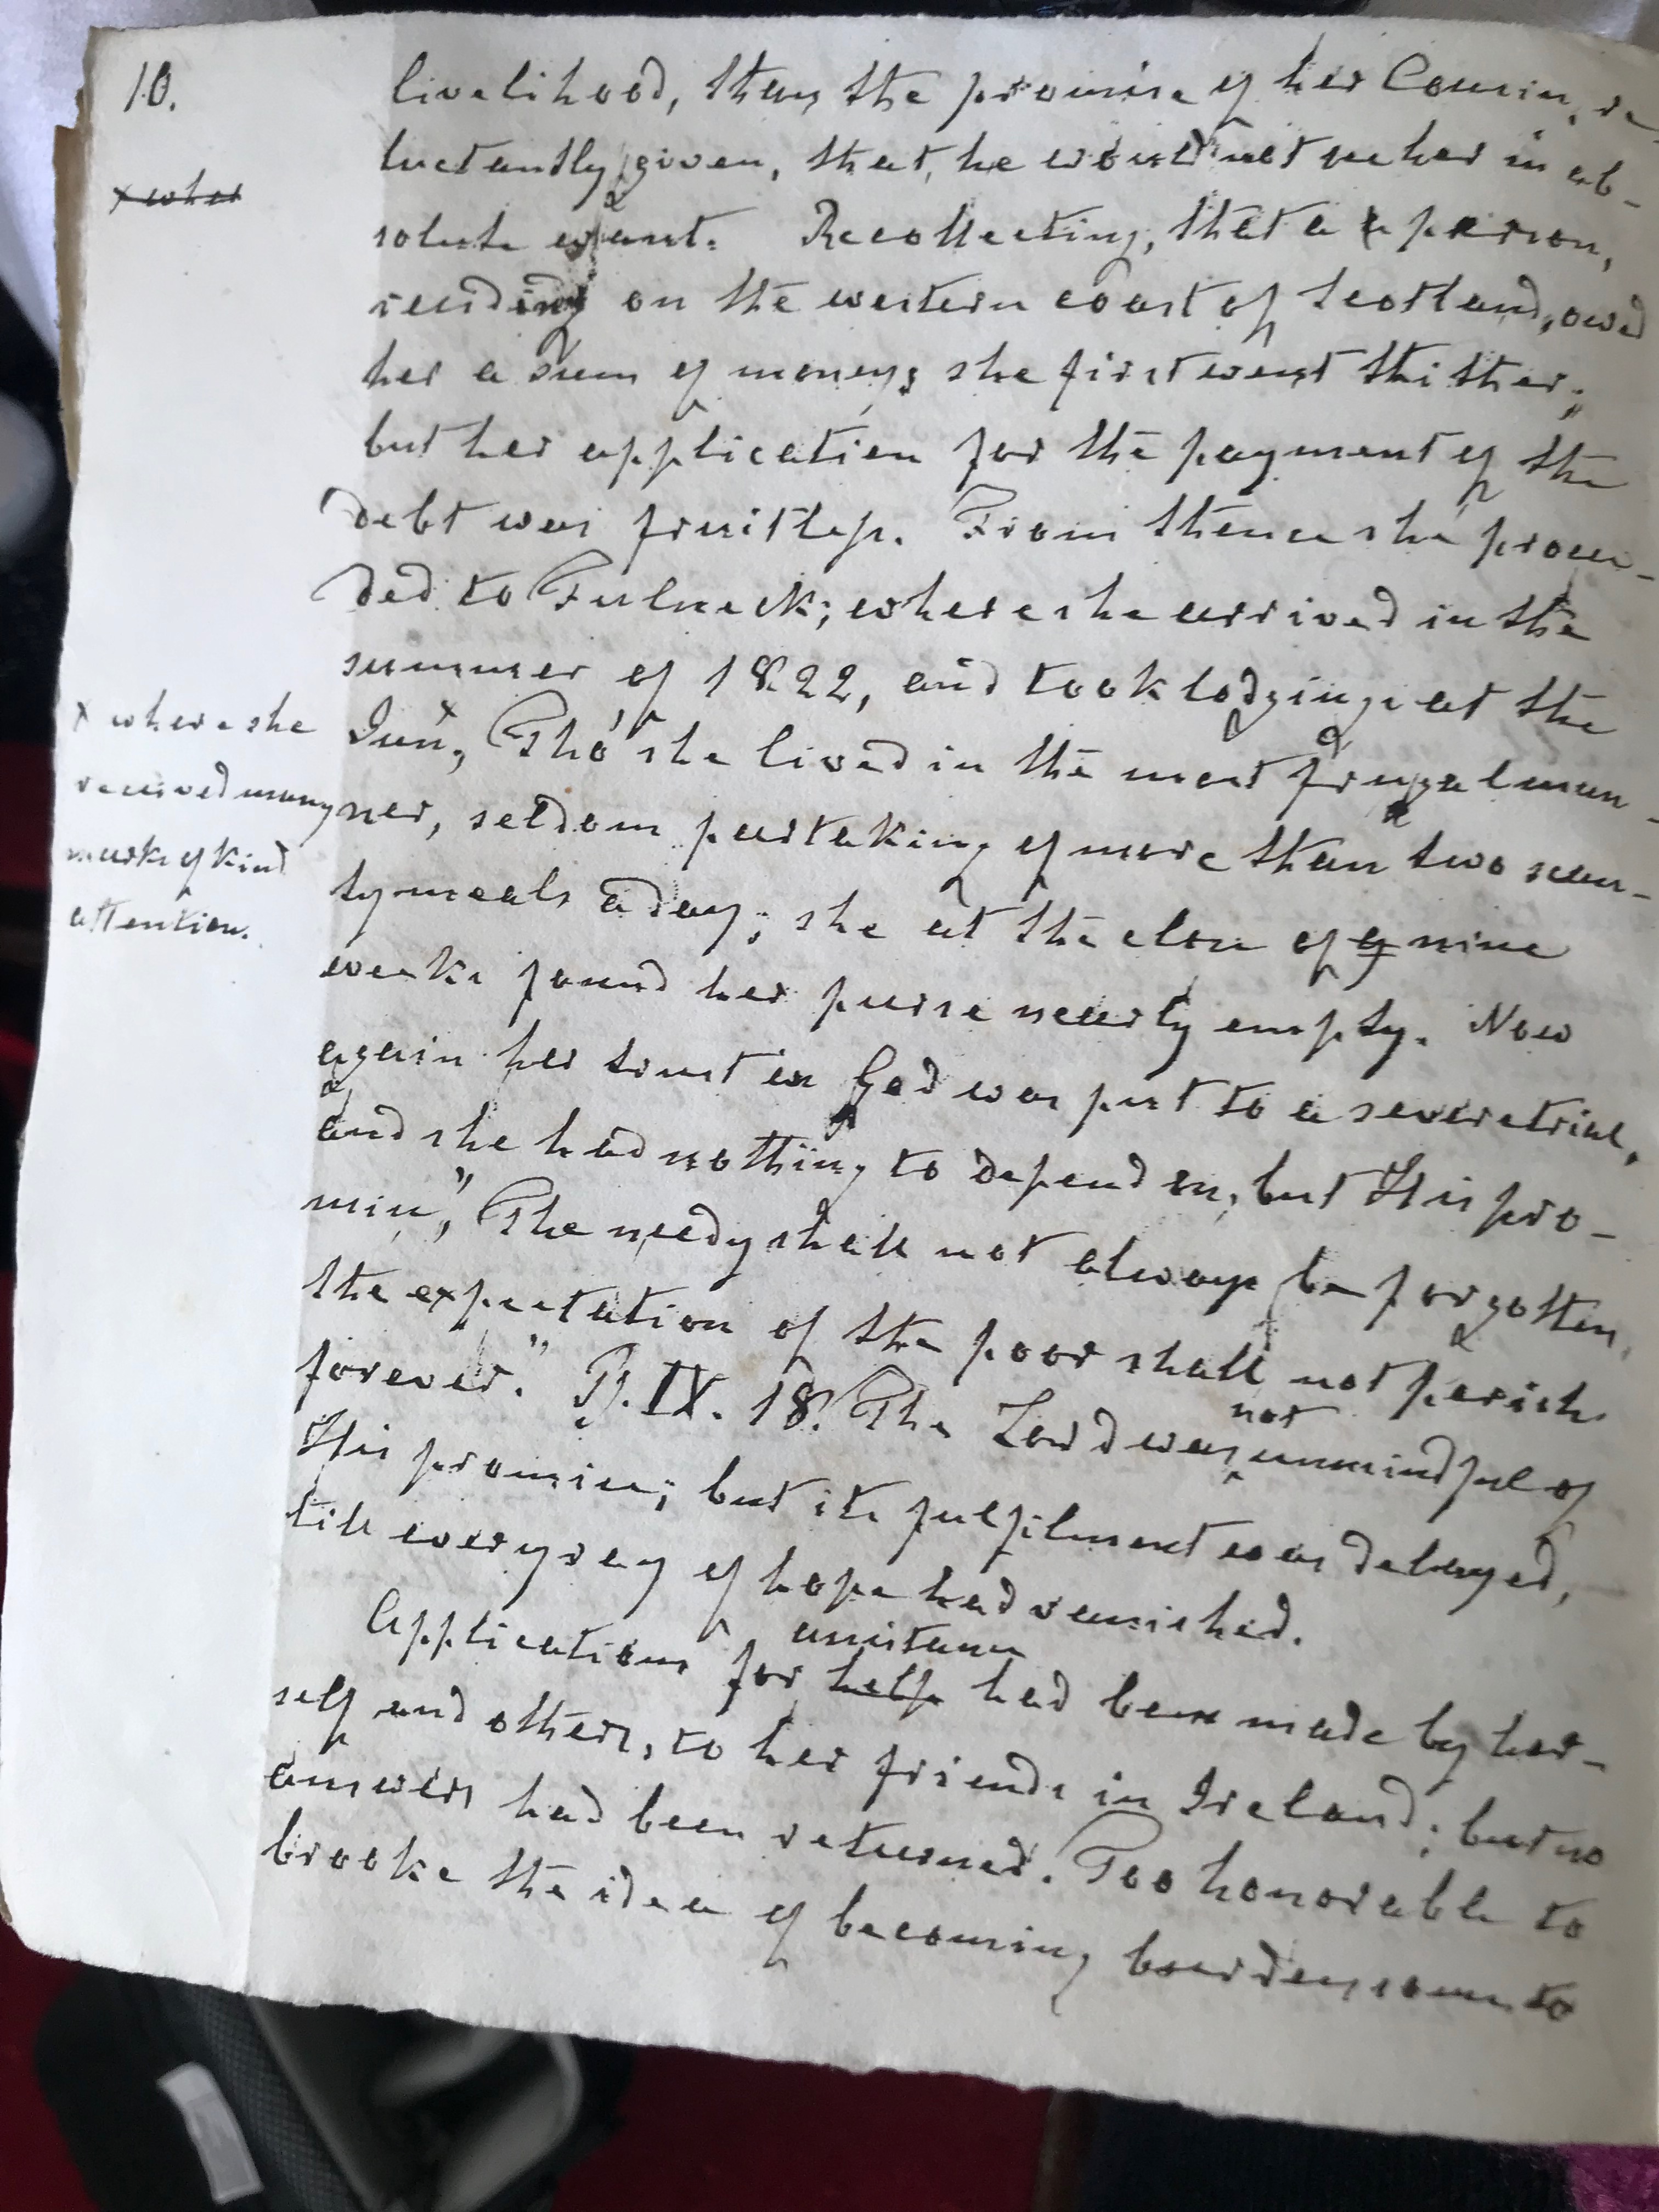 10.
livelihood, than the promise of her Cousin, re-
luctantly given, that, he would not see her in ab-
x wher
solute want. Recollecting, that a person,
residing on the western coast of Scotland, owed
her a sum of money; she first went thither;
but her application for the payment of the
debt was fruitless. From thence she procee-
ded to Fulneck; where she arrived in the
summer of 1822, and took lodgings at the
Inn,x Tho' she lived in the most frugal man-
x where she
received many
marks of kind
attention.
ner, seldom partaking of more than two scan-
ty meals a day; she at the close of nine
weeks found her purse nearly empty. Now
again her trust in God was put to a severe trial,
and she had nothing to depend on, but His pro-
mise, "The needy shall not always be forgotten,
the expectation of the poor shall not perish
forever." Ps. IX. 18. The Lord was not unmindful of
His promise; but its fulfilment was delayed,
till every ray of hope had vanished.
Applications for help assistance had been made by her-
self and others, to her friends in Ireland; but no
answers had been returned. Too honorable to
brooke the idea of becoming bourdensome to